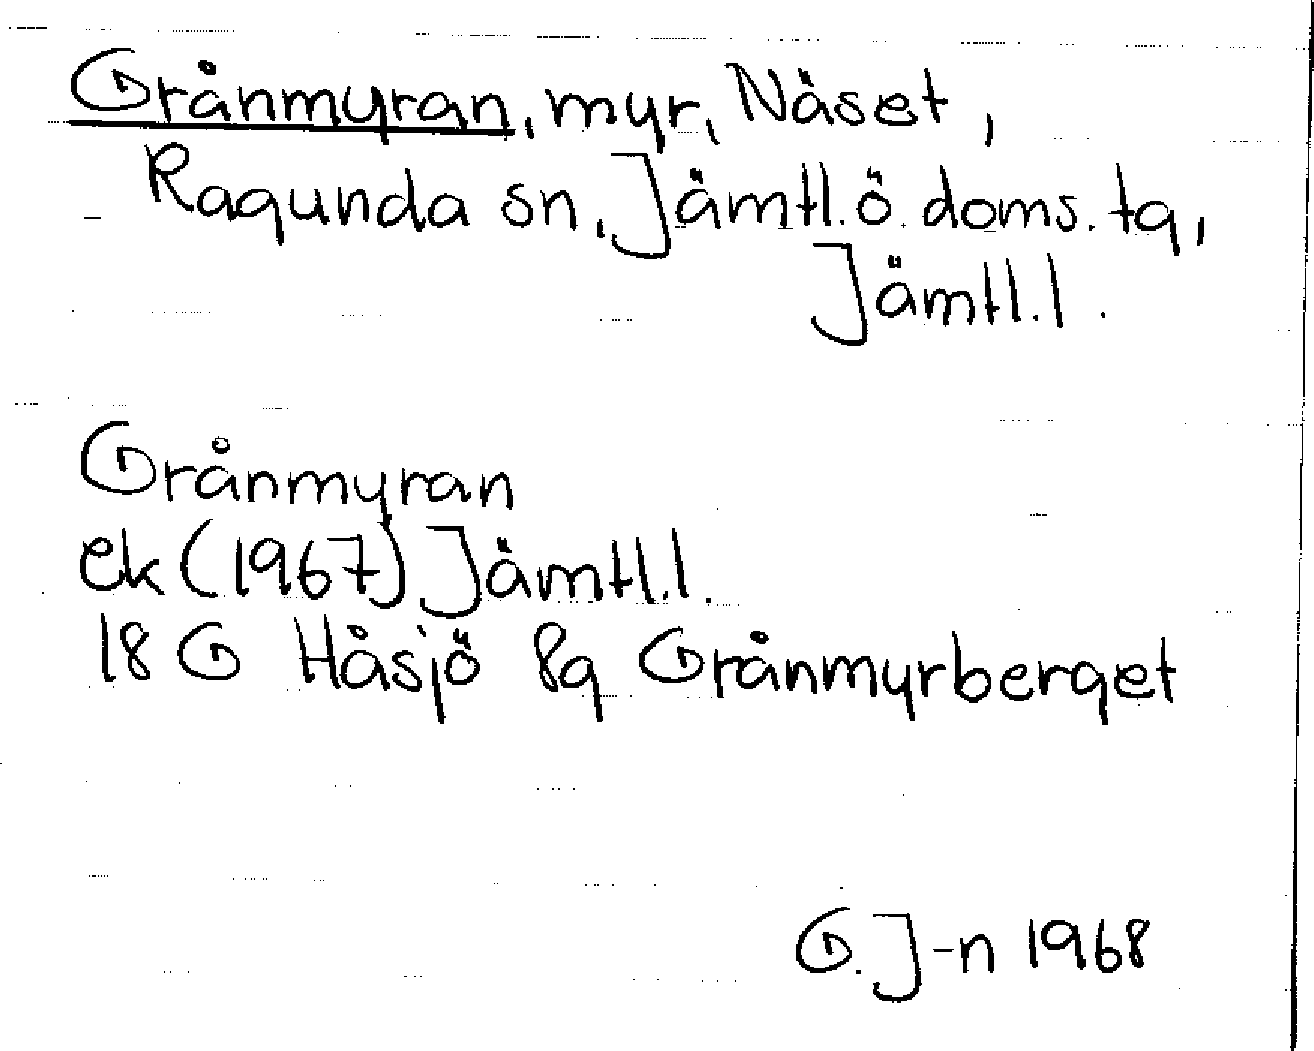 Grånmyran, myr, Näset,
Ragunda sn, Jämtl. ö. doms. tg,
Jämtl. l.
Grånmyran
ek (1967) Jämtl. l.
18 G Håsjö 8g Grånmyrberget
G. J-n 1968